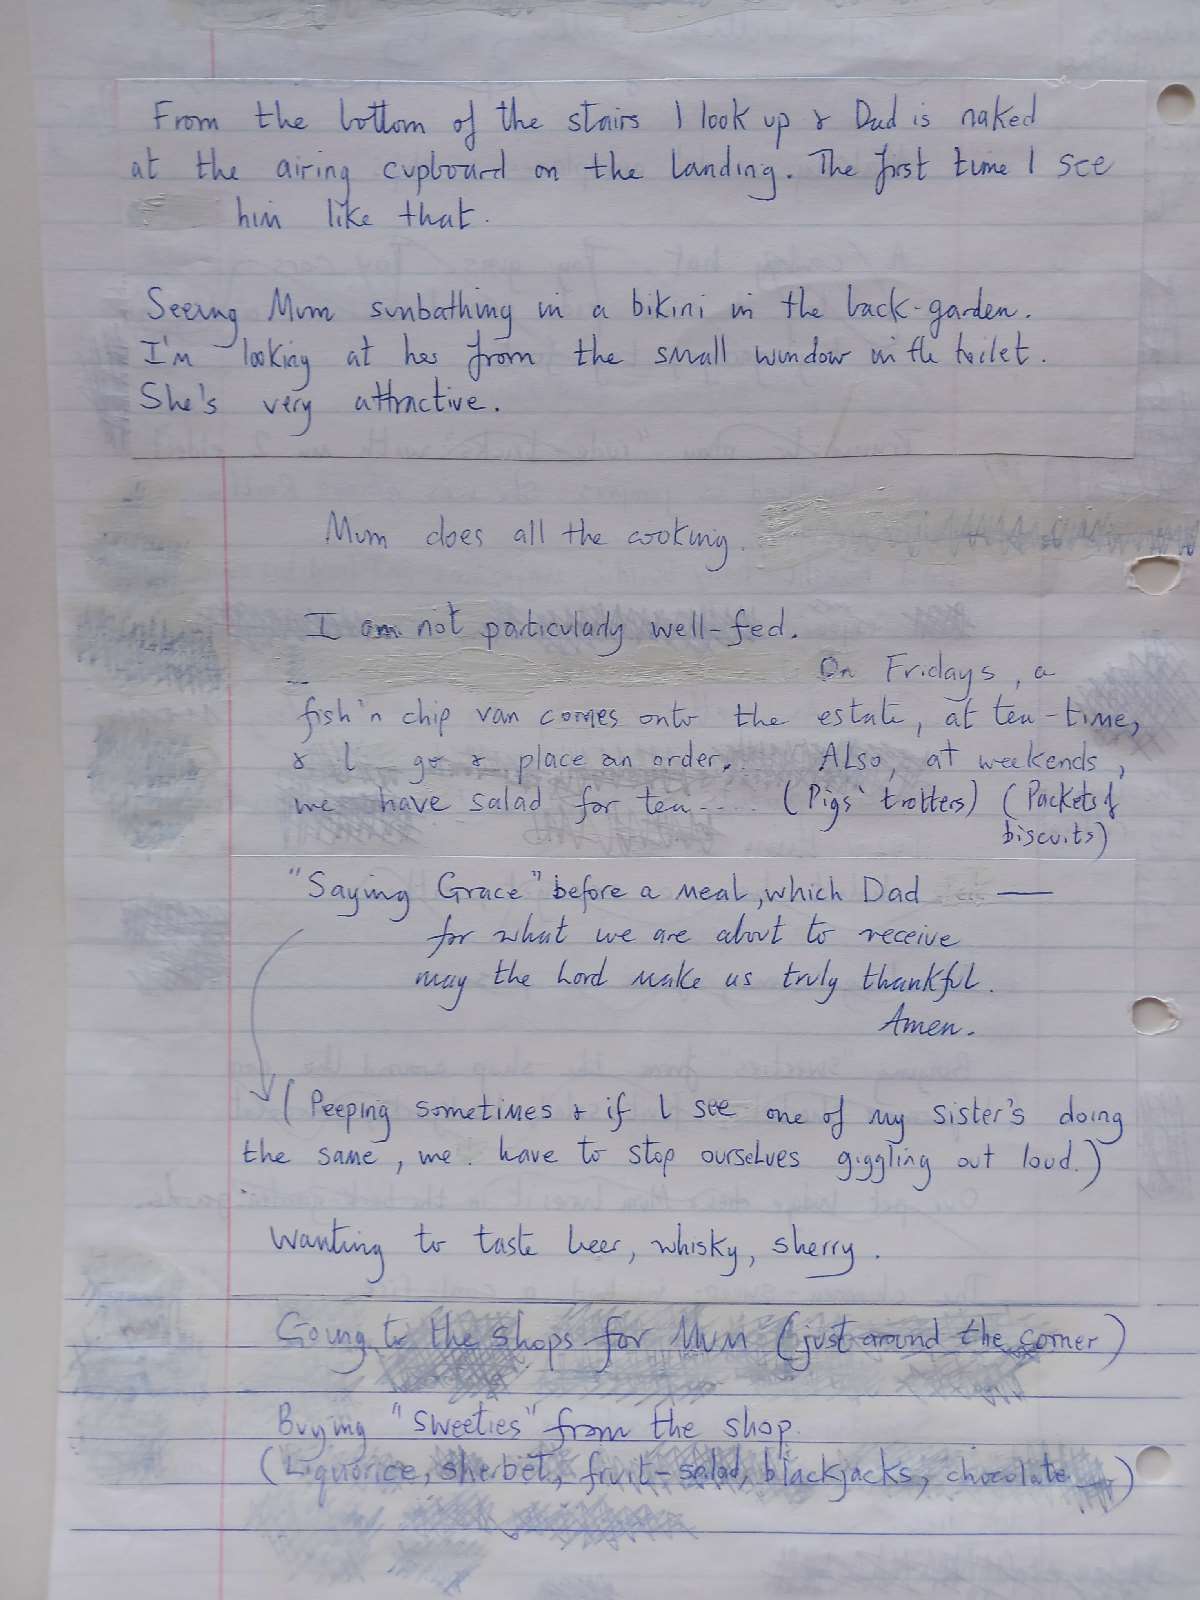 From the bottom of the stairs I look up & Dad is naked
at the airing cupboard on the landing. The first time I see
him like that.
Seeing Mum sunbathing in a bikini in the back-garden.
I'm looking at her from the small window in the toilet.
She's very attractive.
Mum does all the cooking.
I am not particularly well-fed.
On Fridays, a
fish 'n chip van comes onto the estate, at tea-time,
& I go & place an order. Also, at weekends,
we have salad for tea... (Pigs' trotters) (Packets of
biscuits)
"Saying Grace" before a meal, which Dad —
for what we are about to receive
may the Lord make us truly thankful.
Amen.
(Peeping sometimes & if I see one of my sister's doing
the same, we have to stop ourselves giggling out loud.)
Wanting to taste beer, whisky, sherry.
Going to the shops for Mum (just around the corner)
Buying "sweeties" from the shop.
(Liquorice, sherbet, fruit-salad, blackjacks, chocolate...)